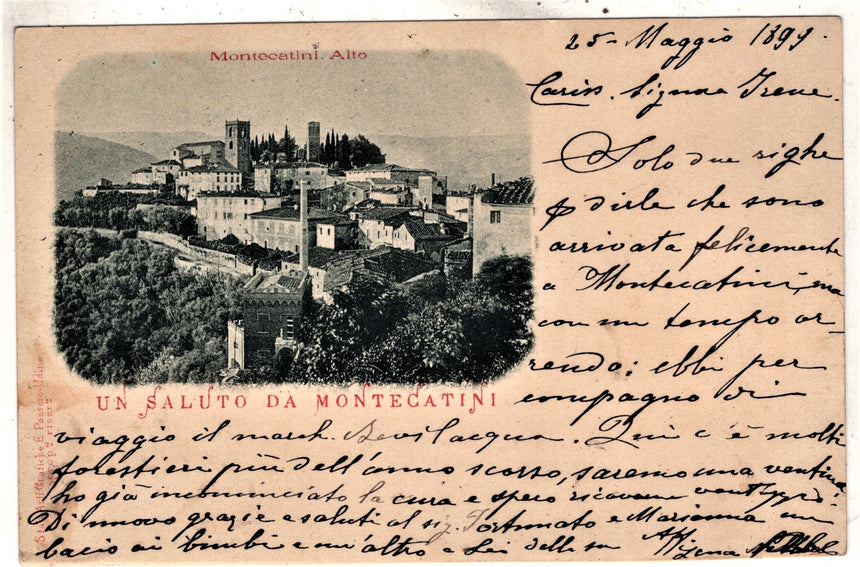 Montecatini. Alto
25 - Maggio 1899
Cariss. Signora Irene.
Solo due righe
p dirle che sono
arrivata felicemente
a Montecatini, ma
con un tempo or-
rendo; ebbi per
compagno di
viaggio il march. Bevilacqua. Qui c'è molti
forestieri più dell'anno scorso, saremo una ventina
ho già incominciato la cura e spero ricavare
Di nuovo grazie e saluti al sig. Fortunato e Marianna un
bacio ai bimbi e un'altro a Lei della sua
UN SALUTO DA MONTECATINI